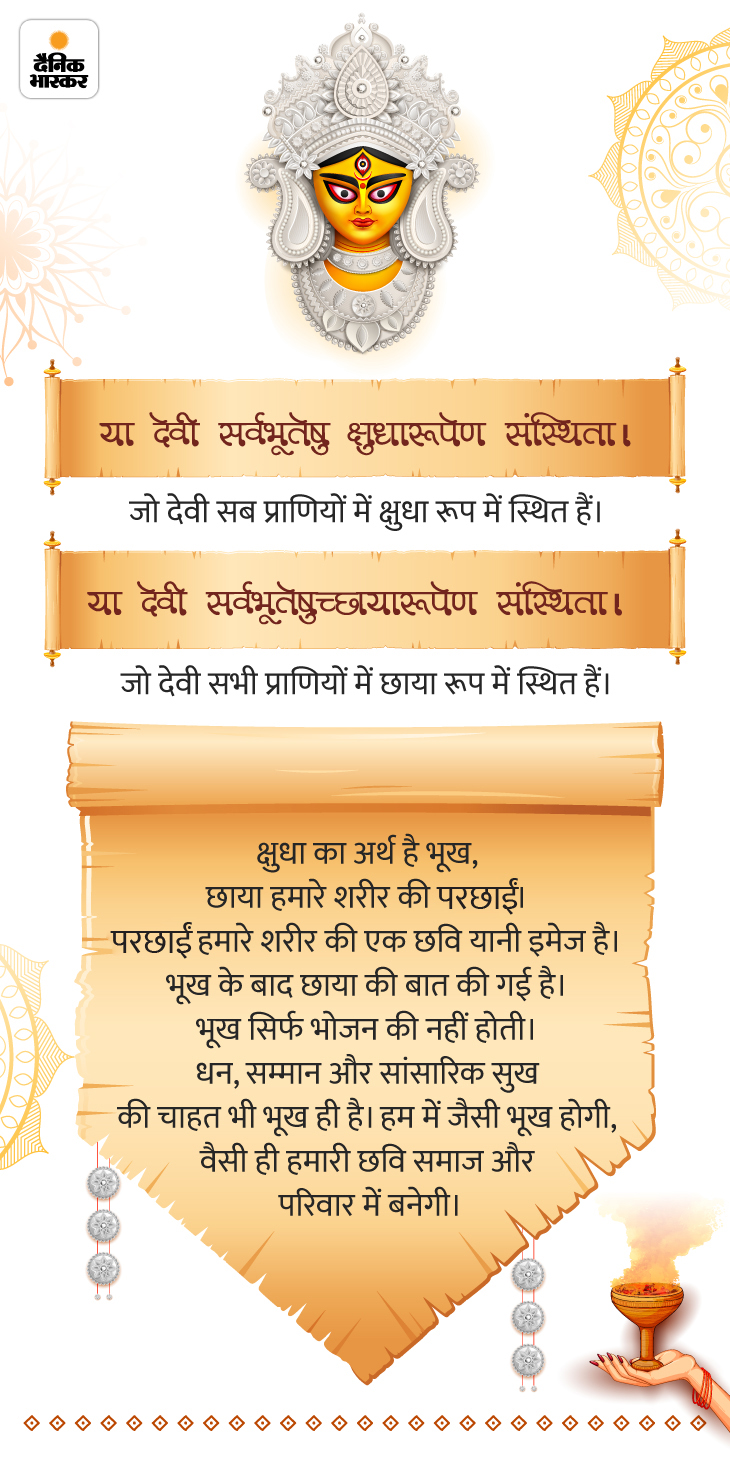 दैनिक
भास्कर
या देवी सर्वभूतेषु क्षुधारूपेण संस्थिता।
जो देवी सब प्राणियों में क्षुधा रूप में स्थित हैं।
या देवी सर्वभूतेषुच्छायारूपेण संस्थिता।
जो देवी सभी प्राणियों में छाया रूप में स्थित हैं।
क्षुधा का अर्थ है भूख,
छाया हमारे शरीर की परछाईं।
परछाईं हमारे शरीर की एक छवि यानी इमेज है।
भूख के बाद छाया की बात की गई है।
भूख सिर्फ भोजन की नहीं होती।
धन, सम्मान और सांसारिक सुख
की चाहत भी भूख ही है। हम में जैसी भूख होगी,
वैसी ही हमारी छवि समाज और
परिवार में बनेगी।